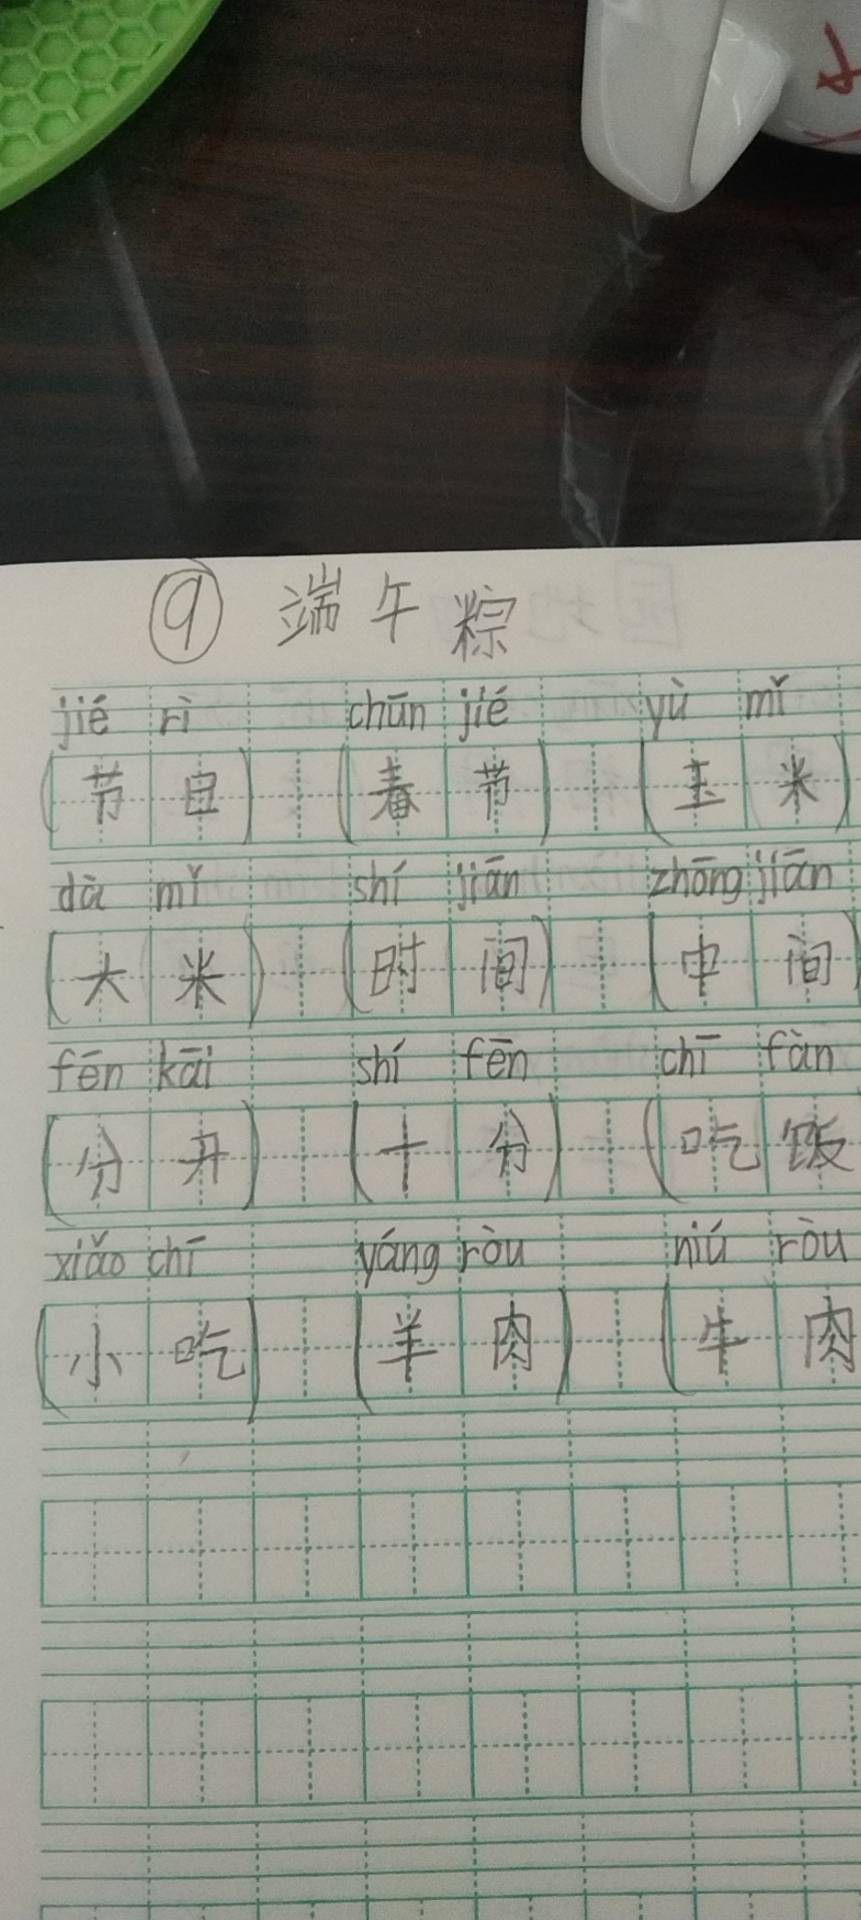 ⑨ 端午粽
jié rì chūn jié yù mǐ
(节日) (春节) (玉米)
dà mǐ shí jiān zhōng jiān
(大米) (时间) (中间)
fēn kāi shí fēn chī fàn
(分开) (十分) (吃饭
xiǎo chī yáng ròu niú ròu
(小吃) (羊肉) (牛肉